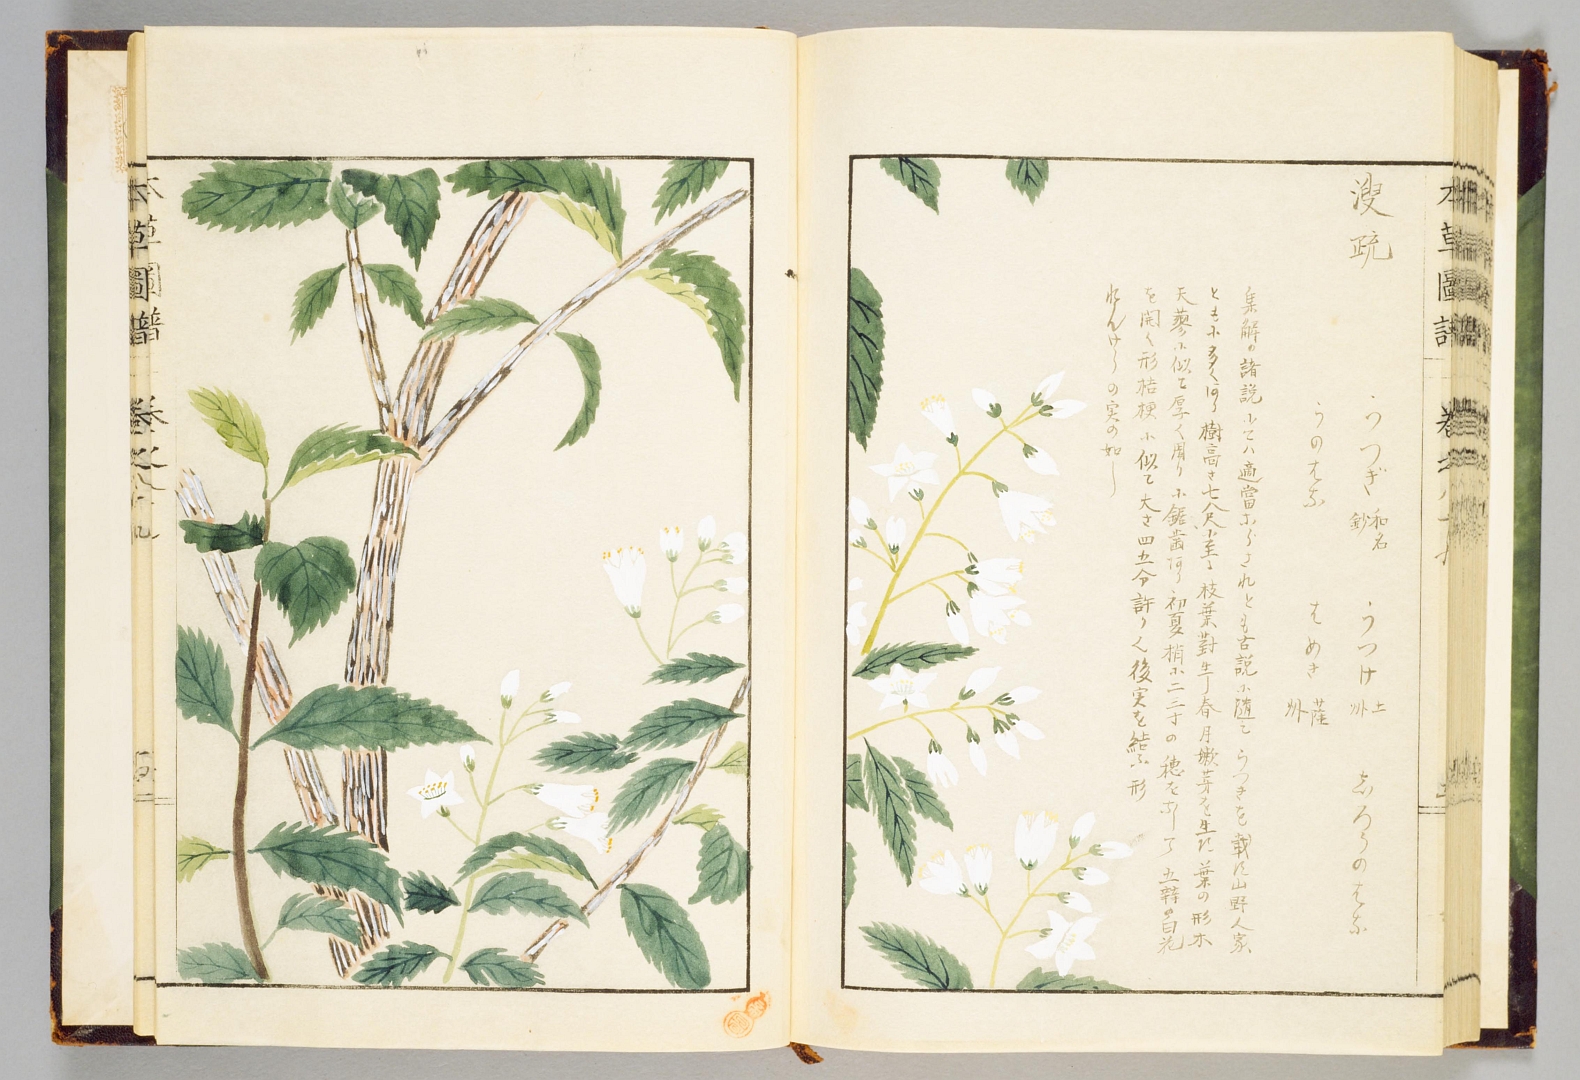 溲疏
うつぎ 和名鈔 うつけ 土州 しろうのはな
うのはな はめき 薩州
集解の諸説にてハ適當ならされとも古説に隨てうつきを載す山野人家
ともに多くあり樹高さ七八尺に至る枝葉對生し春月嫩芽を生す葉の形木
天蓼に似て厚く周りに鋸齒あり初夏梢に二三寸の穂をなして五瓣の白花
を開く形桔梗に似て大さ四五分許り後実を結ふ形
の実の如し
本草圖譜 卷之八十九
本草圖譜